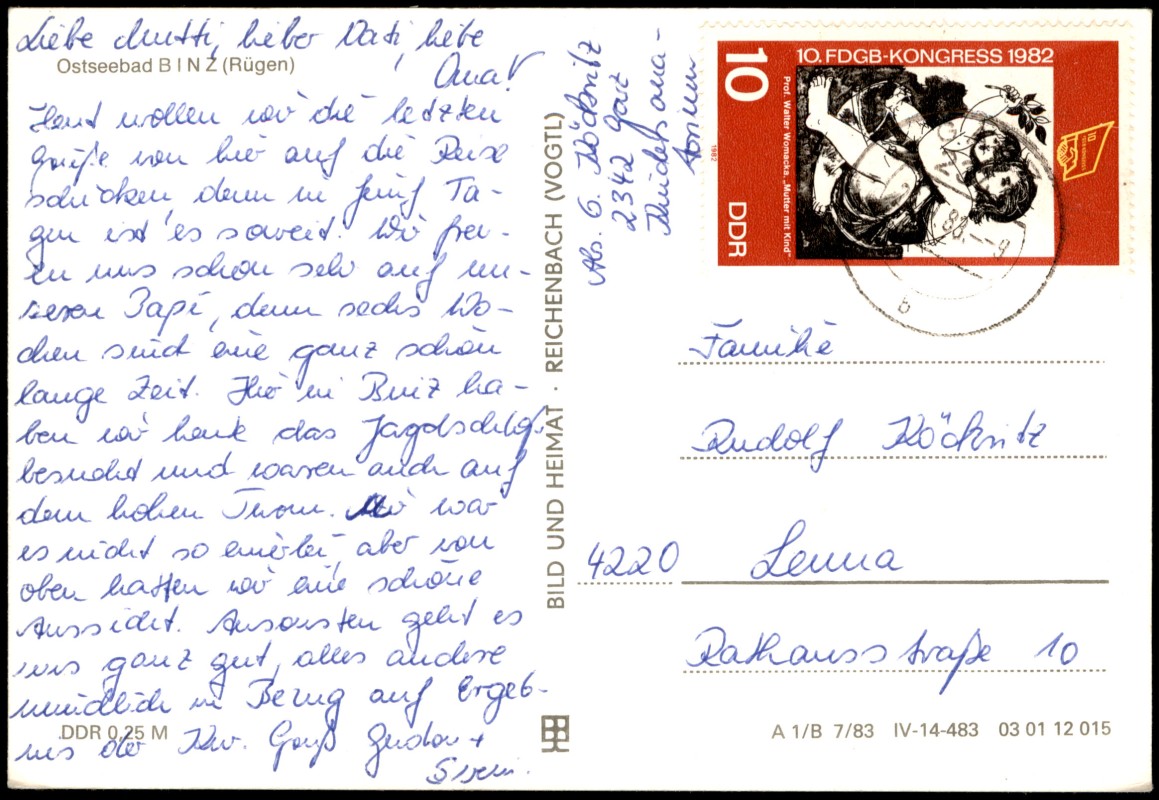 Liebe Mutti, lieber Vati, liebe
Oma!
Ostseebad BINZ (Rügen)
Heut wollen wir die letzten
Grüße von hier auf die Reise
schicken denn in fünf Ta-
gen ist es soweit. Wir freu-
en uns schon sehr auf un-
seren Papi, denn sechs Wo-
chen sind eine ganz schön
lange Zeit. Hier in Binz ha-
ben wir heute das Jagdschloß
besucht und waren auch auf
dem hohen Turm. Mir war
es nicht so einerlei, aber von
oben hatten wir eine schöne
Aussicht. Ansonsten geht es
uns ganz gut, alles andere
mündlich in Bezug auf Ergeb-
nis der Kur. Gruß +
DDR 0,25 M
BILD UND HEIMAT · REICHENBACH (VOGTL)
Abs. G. Köckritz
2342
Kindersana-
torium
10. FDGB-KONGRESS 1982
10
DDR
Prof. Walter Womacka, „Mutter mit Kind"
1982
b
Familie
Rudolf Köckritz
4220 Leuna
Rathausstraße 10
A 1/B 7/83 IV-14-483 03 01 12 015